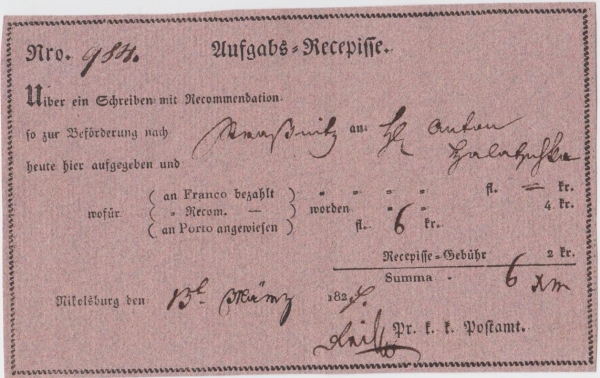 Nro. 984. Aufgabs-Recepisse.
Uiber ein Schreiben mit Recommendation
so zur Beförderung nach Straßnitz an: H. Anton
heute hier aufgegeben und
(an Franco bezahlt) " " " " fl. — kr.
wofür (" Recom. —) worden " " 4 kr.
(an Porto angewiesen) fl. 6 kr.
Recepisse-Gebühr 2 kr.
Summa . 6 xm
Nikolsburg den 13t März 182
Pr. k. k. Postamt.